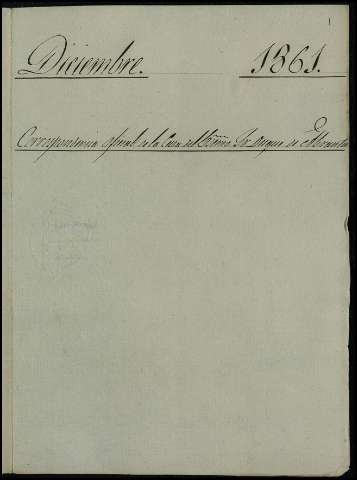 1
Diciembre. 1861.
Correspondencia oficial de la Casa del Excmo Sr Duque de